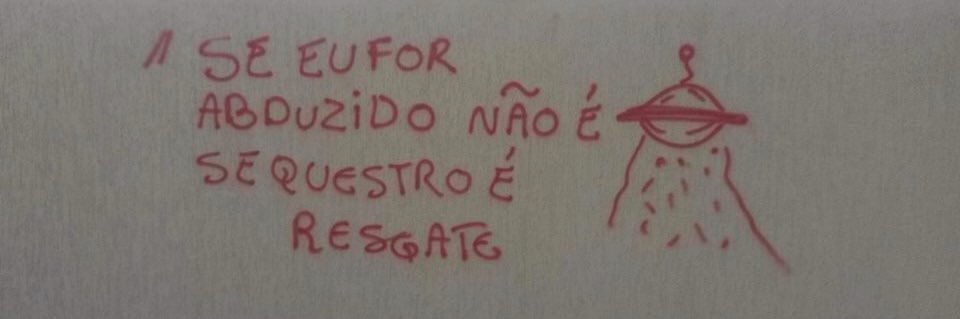 " SE EU FOR
ABDUZIDO NÃO É
SEQUESTRO É
RESGATE